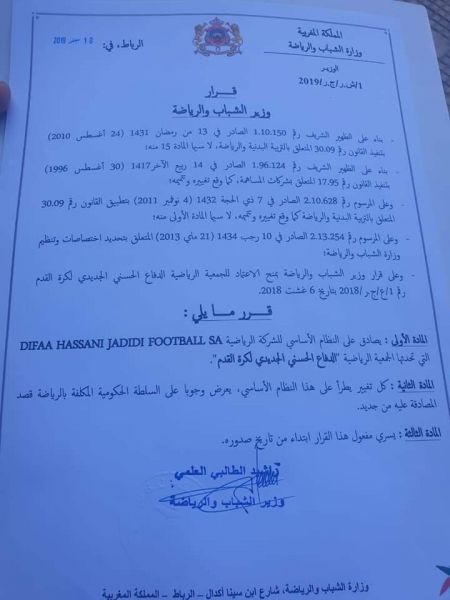 المملكة المغربية
وزارة الشباب والرياضة
الوزير
1/ش.ر/ج.ر/2019
الرباط، في: 10 2019
قـــرار
وزير الشباب والرياضة
- بناء على الظهير الشريف رقم 1.10.150 الصادر في 13 من رمضان 1431 (24 أغسطس 2010)
بتنفيذ القانون رقم 30.09 المتعلق بالتربية البدنية والرياضة، لا سيما المادة 15 منه؛
- بناء على الظهير الشريف رقم 1.96.124 الصادر في 14 ربيع الآخر1417 (30 أغسطس 1996)
بتنفيذ القانون رقم 17.95 المتعلق بشركات المساهمة، كما وقع تغييره وتتميمه؛
- وعلى المرسوم رقم 2.10.628 الصادر في 7 ذي الحجة 1432 (4 نوفمبر 2011) بتطبيق القانون رقم 30.09
المتعلق بالتربية البدنية والرياضة كما وقع تغييره وتتميمه، لا سيما المادة الأولى منه؛
- وعلى المرسوم رقم 2.13.254 الصادر في 10 رجب 1434 (21 ماي 2013) المتعلق بتحديد اختصاصات وتنظيم
وزارة الشباب والرياضة؛
- وعلى قرار وزير الشباب والرياضة بمنح الاعتماد للجمعية الرياضية الدفاع الحسني الجديدي لكرة القدم
رقم 1/ع/ج.ر/2018 بتاريخ 6 غشت 2018.
قـــرر مـا يـلي :
المادة الأولى : يصادق على النظام الأساسي للشركة الرياضية DIFAA HASSANI JADIDI FOOTBALL SA
التي تحدثها الجمعية الرياضية "الدفاع الحسني الجديدي لكرة القدم".
المادة الثانية : كل تغيير يطرأ على هذا النظام الأساسي، يعرض وجوبا على السلطة الحكومية المكلفة بالرياضة قصد
المصادقة عليه من جديد.
المادة الثالثة : يسري مفعول هذا القرار ابتداء من تاريخ صدوره.
رشيد الطالبي العلمي
وزير الشباب والرياضة
وزارة الشباب والرياضة، شارع ابن سينا أكدال – الرباط – المملكة المغربية